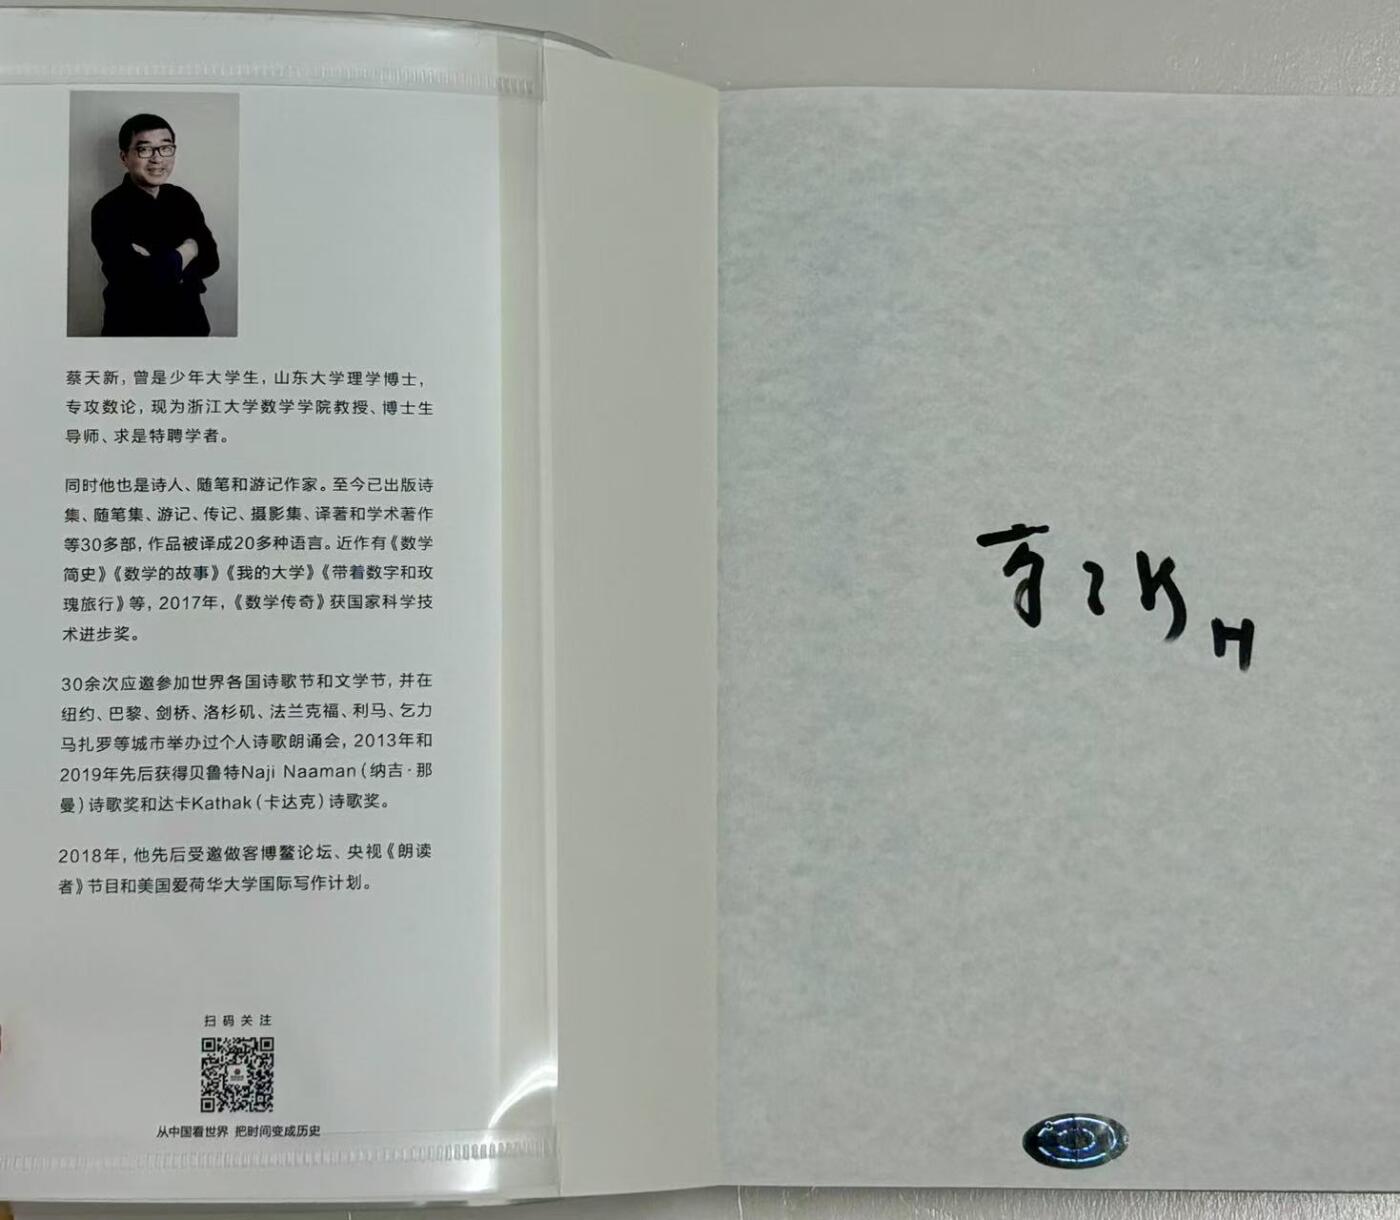 蔡天新，曾是少年大学生，山东大学理学博士，
专攻数论，现为浙江大学数学学院教授、博士生
导师、求是特聘学者。
同时他也是诗人、随笔和游记作家。至今已出版诗
集、随笔集、游记、传记、摄影集、译著和学术著作
等30多部，作品被译成20多种语言。近作有《数学
简史》《数学的故事》《我的大学》《带着数字和玫
瑰旅行》等，2017年，《数学传奇》获国家科学技
术进步奖。
30余次应邀参加世界各国诗歌节和文学节，并在
纽约、巴黎、剑桥、洛杉矶、法兰克福、利马、乞力
马扎罗等城市举办过个人诗歌朗诵会，2013年和
2019年先后获得贝鲁特Naji Naaman（纳吉·那
曼）诗歌奖和达卡Kathak（卡达克）诗歌奖。
2018年，他先后受邀做客博鳌论坛、央视《朗读
者》节目和美国爱荷华大学国际写作计划。
扫码关注
从中国看世界 把时间变成历史